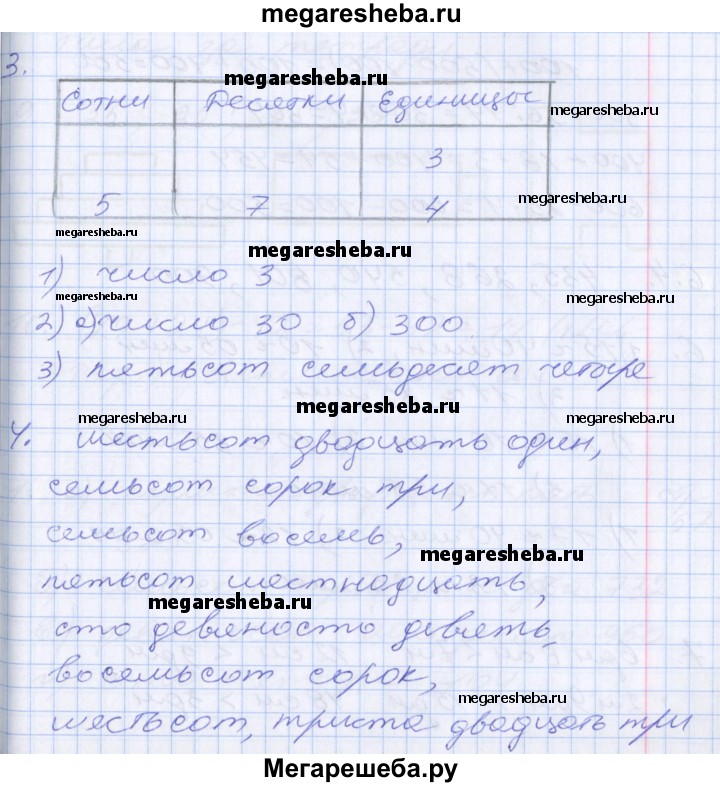 megaresheba.ru
3.
megaresheba.ru
Сотни Десятки Единицы
megaresheba.ru
3
megaresheba.ru
5 7 4
megaresheba.ru
megaresheba.ru
1) число 3
2) а) число 30 б) 300
3) пятьсот семьдесят четыре
megaresheba.ru
megaresheba.ru
megaresheba.ru
4. шестьсот двадцать один,
семьсот сорок три,
семьсот восемь,
megaresheba.ru
пятьсот шестнадцать,
megaresheba.ru
сто девяносто девять,
восемьсот сорок,
megaresheba.ru
шестьсот, триста двадцать три
Мегарешеба.ру